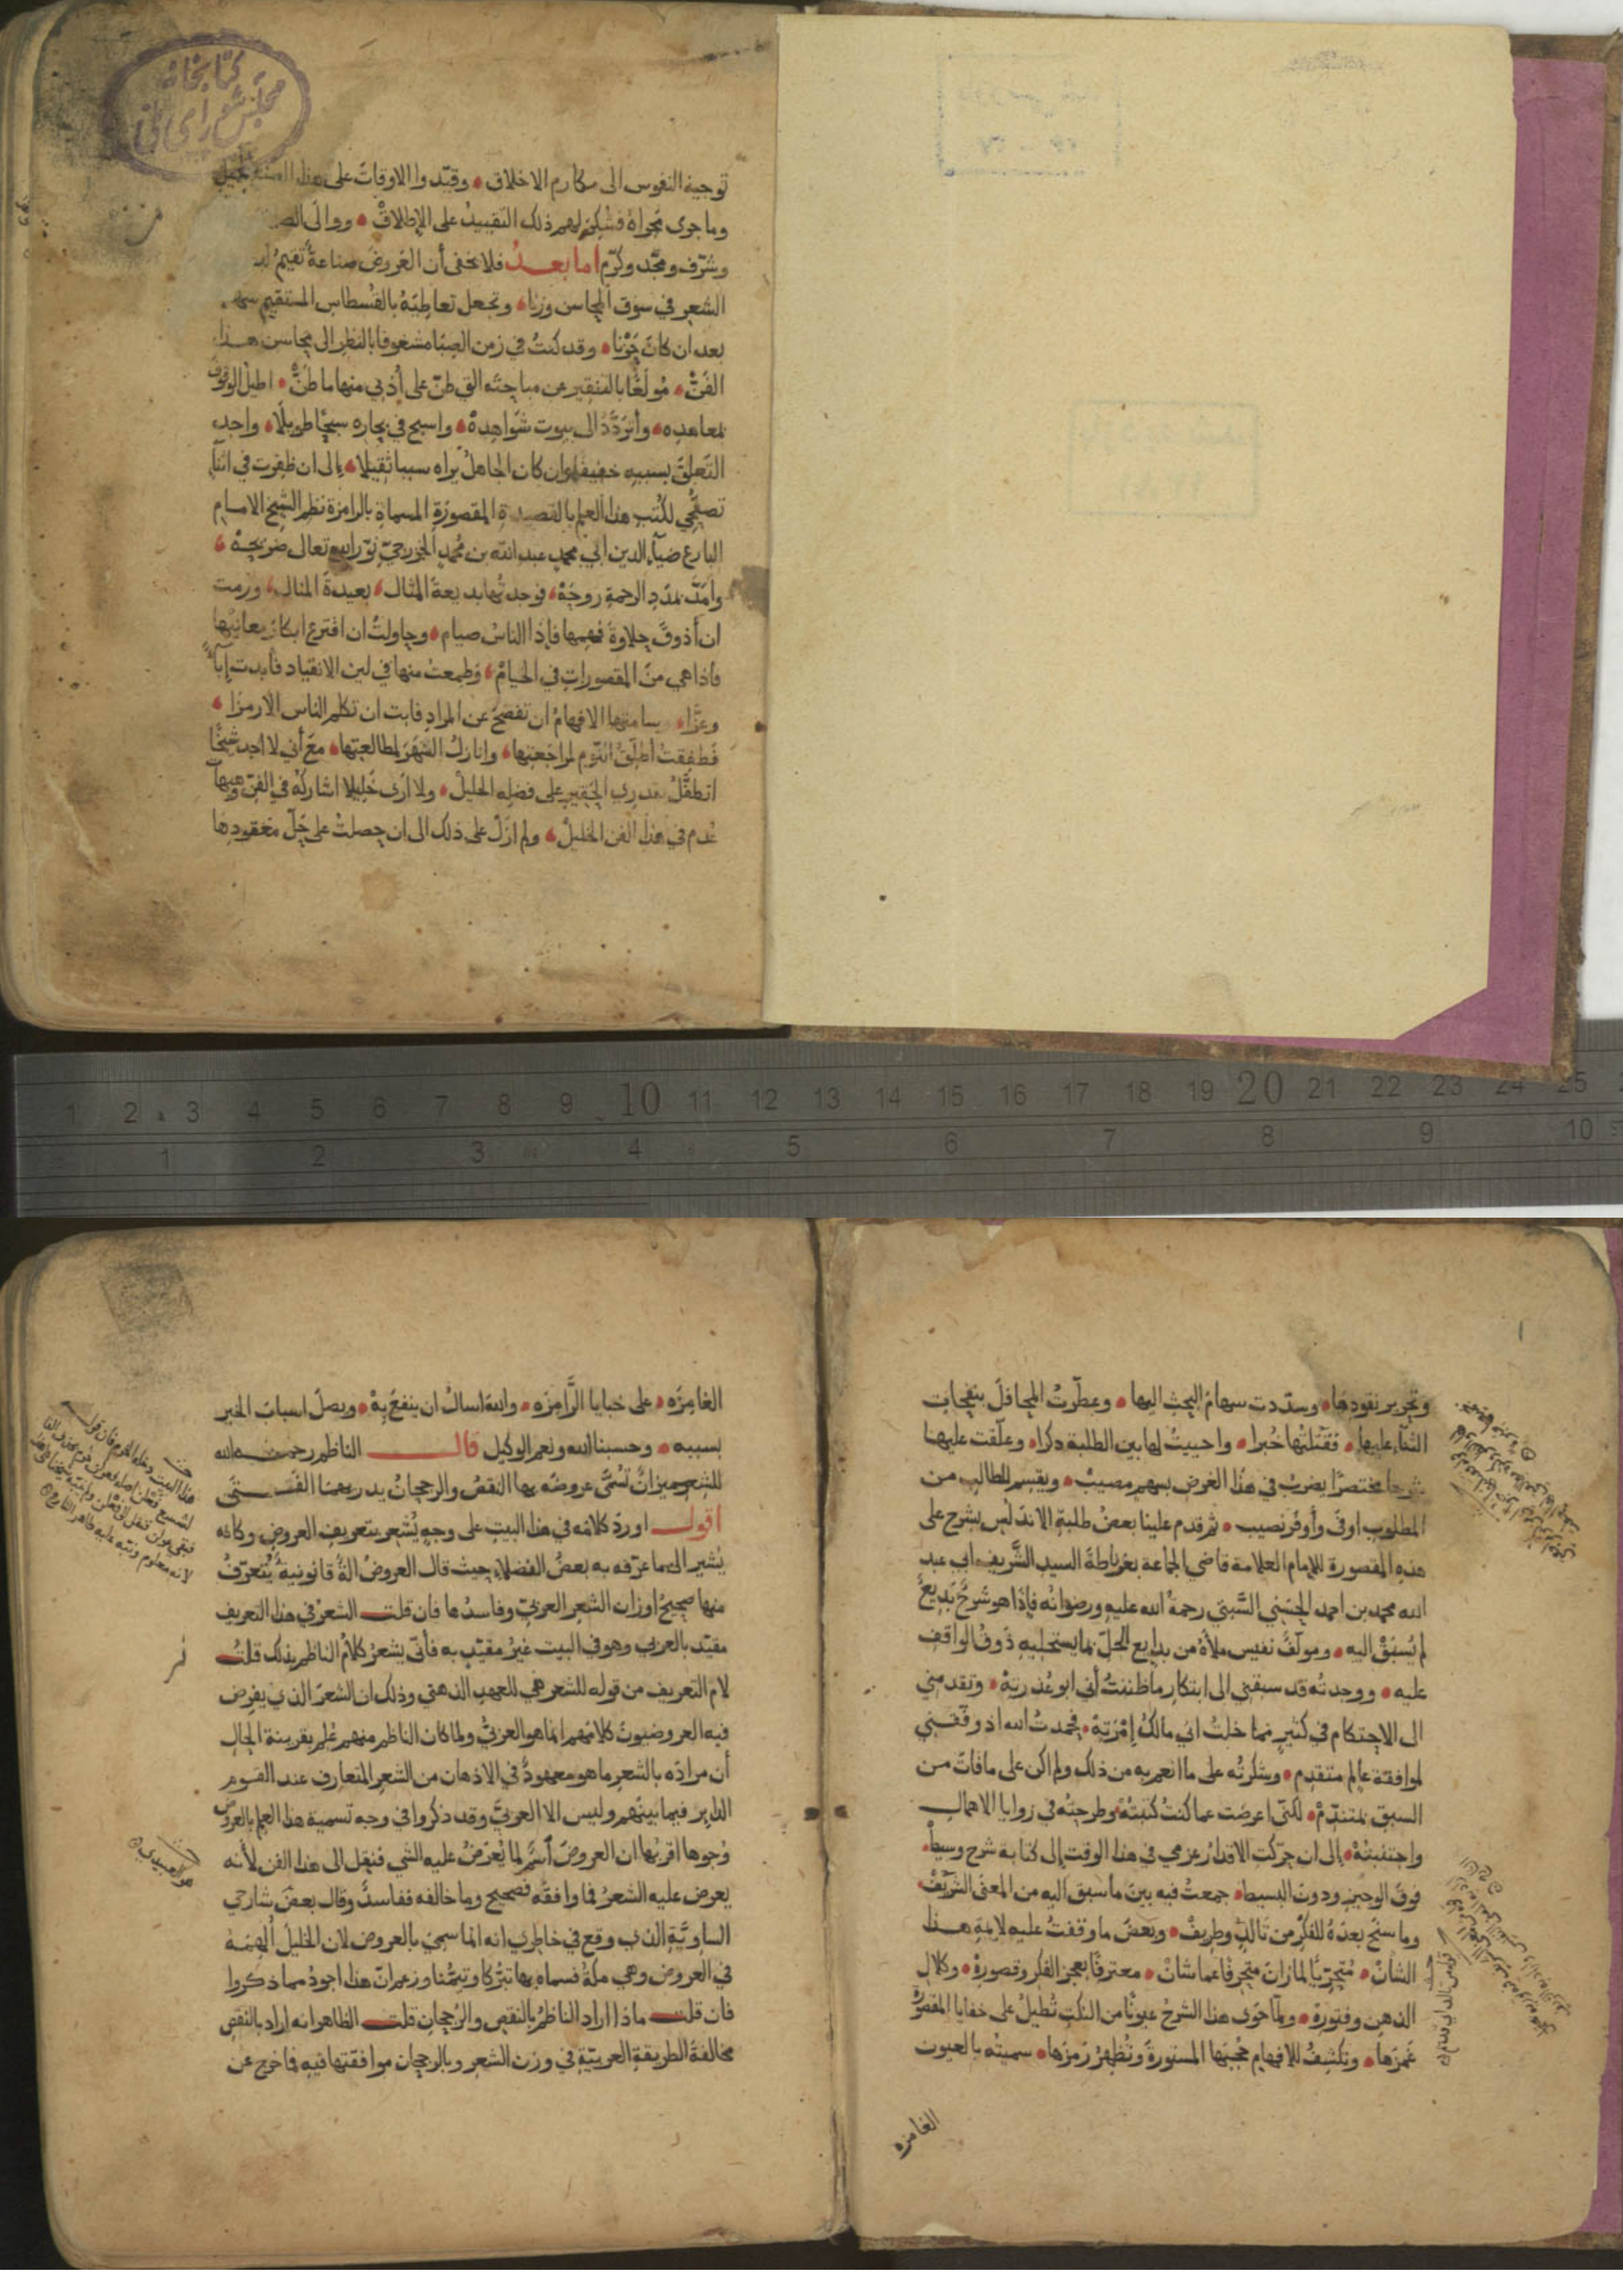 كتابخانه
مجلس شورای ملی
توجيه النفوس الى مكارم الاخلاق • وقيّدوا الاوقات على هذا
وما جرى مجراه فشكر لهم ذلك التقييد على الإطلاق • ووالى
وشرّف ومجّد وكرّم اما بعد فلا يخفى أن العروض صناعة تقيم
الشعر في سوق المحاسن وزنا • وتجعل تعاطيه بالقسطاس المستقيم سهلا
بعد ان كان حَزْنا • وقد كنت في زمن الصبا مشغوفا بالنظر الى محاسن هذا
الفنّ • مُولَعًا بالتنقير عن مباحثه التي طنّ على أذني منها ما طنّ • اطيل الوقوف
بمعاهده • وأتردّد الى بيوت شواهده • واسبح في بحاره سبحا طويلا • واجد
التعلق بسببه خفيفا وان كان الجاهل يراه سببا ثقيلا • الى ان ظفرت في اثناء
تصفّحي لكتب هذا العلم بالقصيدة المقصورة المسماة بالرامزة نظم الشيخ الامام
البارع ضياء الدين ابي محمد عبد الله بن محمد الخزرجيّ نوّر الله تعالى ضريحه •
وأمدّ بمدد الرحمة روحه • فوجدتها بديعة المثال • بعيدة المنال • ورمت
ان أذوق حلاوة فهمها فإذا الناس صيام • وحاولت ان افترع ابكار معانيها
فاذا هي من المقصورات في الخيام • وطمعت منها في لين الانقياد فأبدت إباءً
وعزّا • وسامتها الافهام أن تفصح عن المراد فابت ان تكلم الناس الا رمزا •
فطفقت أطلّق النوم لمراجعتها • وانازل السّهر لمطالعتها • مع أني لا اجد شيخا
اتطفّل بقدري الحقير على فضله الجليل • ولا ارى خليلا اشاركه في الفنّ وهيهات
عُدم في هذا الفن الخليل • ولم ازل على ذلك الى ان حصلت على حلّ معقودها
وتحرير نقودها • وسدّدت سهام البحث اليها • وعطّرت المحافل بنفحات
الثناء عليها • فقتلتُها خُبرا • واحييت لها بين الطلبة ذكرا • وعلّقت عليها
شرحا مختصرًا يضرب في هذا الغرض بسهم مصيب • ويقسم للطالب من
المطلوب اوفى وأوفر نصيب • ثم قدم علينا بعض طلبة الاندلس بشرح على
هذه المقصورة للإمام العلامة قاضي الجماعة بغرناطة السيد الشريف ابي عبد
الله محمد بن احمد الحسني السّبتي رحمة الله عليه ورضوانه فإذا هو شرح بديع
لم يُسبق اليه • ومؤلَّف نفيس ملأه من بدايع الحلّ بما يستحليه ذوق الواقف
عليه • ووجدته قد سبقني الى ابتكار ما ظننت أني ابو عُذرته • وتقدمني
الى الاحتكام في كثير مما خلت اني مالك إمرته • فحمدت الله اذ وفّقني
لموافقة عالم متقدم • وشكرته على ما انعم به من ذلك ولم اكن على ما فات من
السبق بمتندّم • لكني اعرضت عما كنت كتبته وطرحته في زوايا الاهمال
واجتنبته • الى ان حرّكت الاقدار عزمي في هذا الوقت إلى كتابة شرح وسيط •
فوق الوجيز ودون البسيط • جمعت فيه بين ما سبق اليه من المعنى الشريف •
وما سنح بعده للفكر من تالد وطريف • وبعض ما وقفت عليه لايمة هذا
الشان • متحرّيًا لما زان منحرفا عما شان • معترفا بعجز الفكر وقصوره • وكلال
الذهن وفتوره • ولمّا حوى هذا الشرح عيونًا من النكت تُطيل على خفايا المقصورة
غمزها • وتكشف للافهام حجبها المستورة وتُظهر رمزها • سميته بالعيون
الغامزه
الغامِزَه • على خبايا الرَّامزه • والله اسال ان ينفع به • ويصل اسباب الخير
بسببه • وحسبنا الله ونعم الوكيل قال الناظم رحمه الله
للشعر ميزان تُسمّى عروضه بها النقص والرجحان يدريهما الفتى
اقول اورد كلامه في هذا البيت على وجه يُشعر بتعريف العروض وكانه
يُشير الى ما عرّفه به بعض الفضلاء حيث قال العروض الة قانونية يُتعرّف
منها صحيح اوزان الشعر العربيّ وفاسدها فان قلت الشعر في هذا التعريف
مقيّد بالعربي وهو في البيت غير مقيّد به فأنّى يشعر كلام الناظم بذلك قلت
لام التعريف من قوله للشعر هي للعهد الذهني وذلك ان الشعر الذي يفرض
فيه العروضيون كلامهم انما هو العربيّ ولما كان الناظم منهم عُلم بقرينة الحال
أن مراده بالشعر ما هو معهود في الاذهان من الشعر المتعارف عند القوم
الداير فيما بينهم وليس الا العربيّ وقد ذكروا في وجه تسمية هذا العلم بالعروض
وُجوها اقربها ان العروض اسم لما يُعرَض عليه الشي فنقل الى هذا الفن لأنه
يعرض عليه الشعر فما وافقه فصحيح وما خالفه ففاسد وقال بعض شارحي
الساويّة الذي وقع في خاطري انه انما سمي بالعروض لان الخليل أُلهِمَه
في العروض وهي مكة فسماه بها تبرّكا وتيمّنا وزعم انّ هذا اجود مما ذكروا
فان قلت ماذا اراد الناظم بالنقص والرُجحان قلت الظاهر انه اراد بالنقص
مخالفة الطريقة العربيّة في وزن الشعر وبالرجحان موافقتها فيه فما خرج عن
1 2 3 4 5 6 7 8 9 10 11 12 13 14 15 16 17 18 19 20 21 22 23 24 25
1 2 3 4 5 6 7 8 9 10